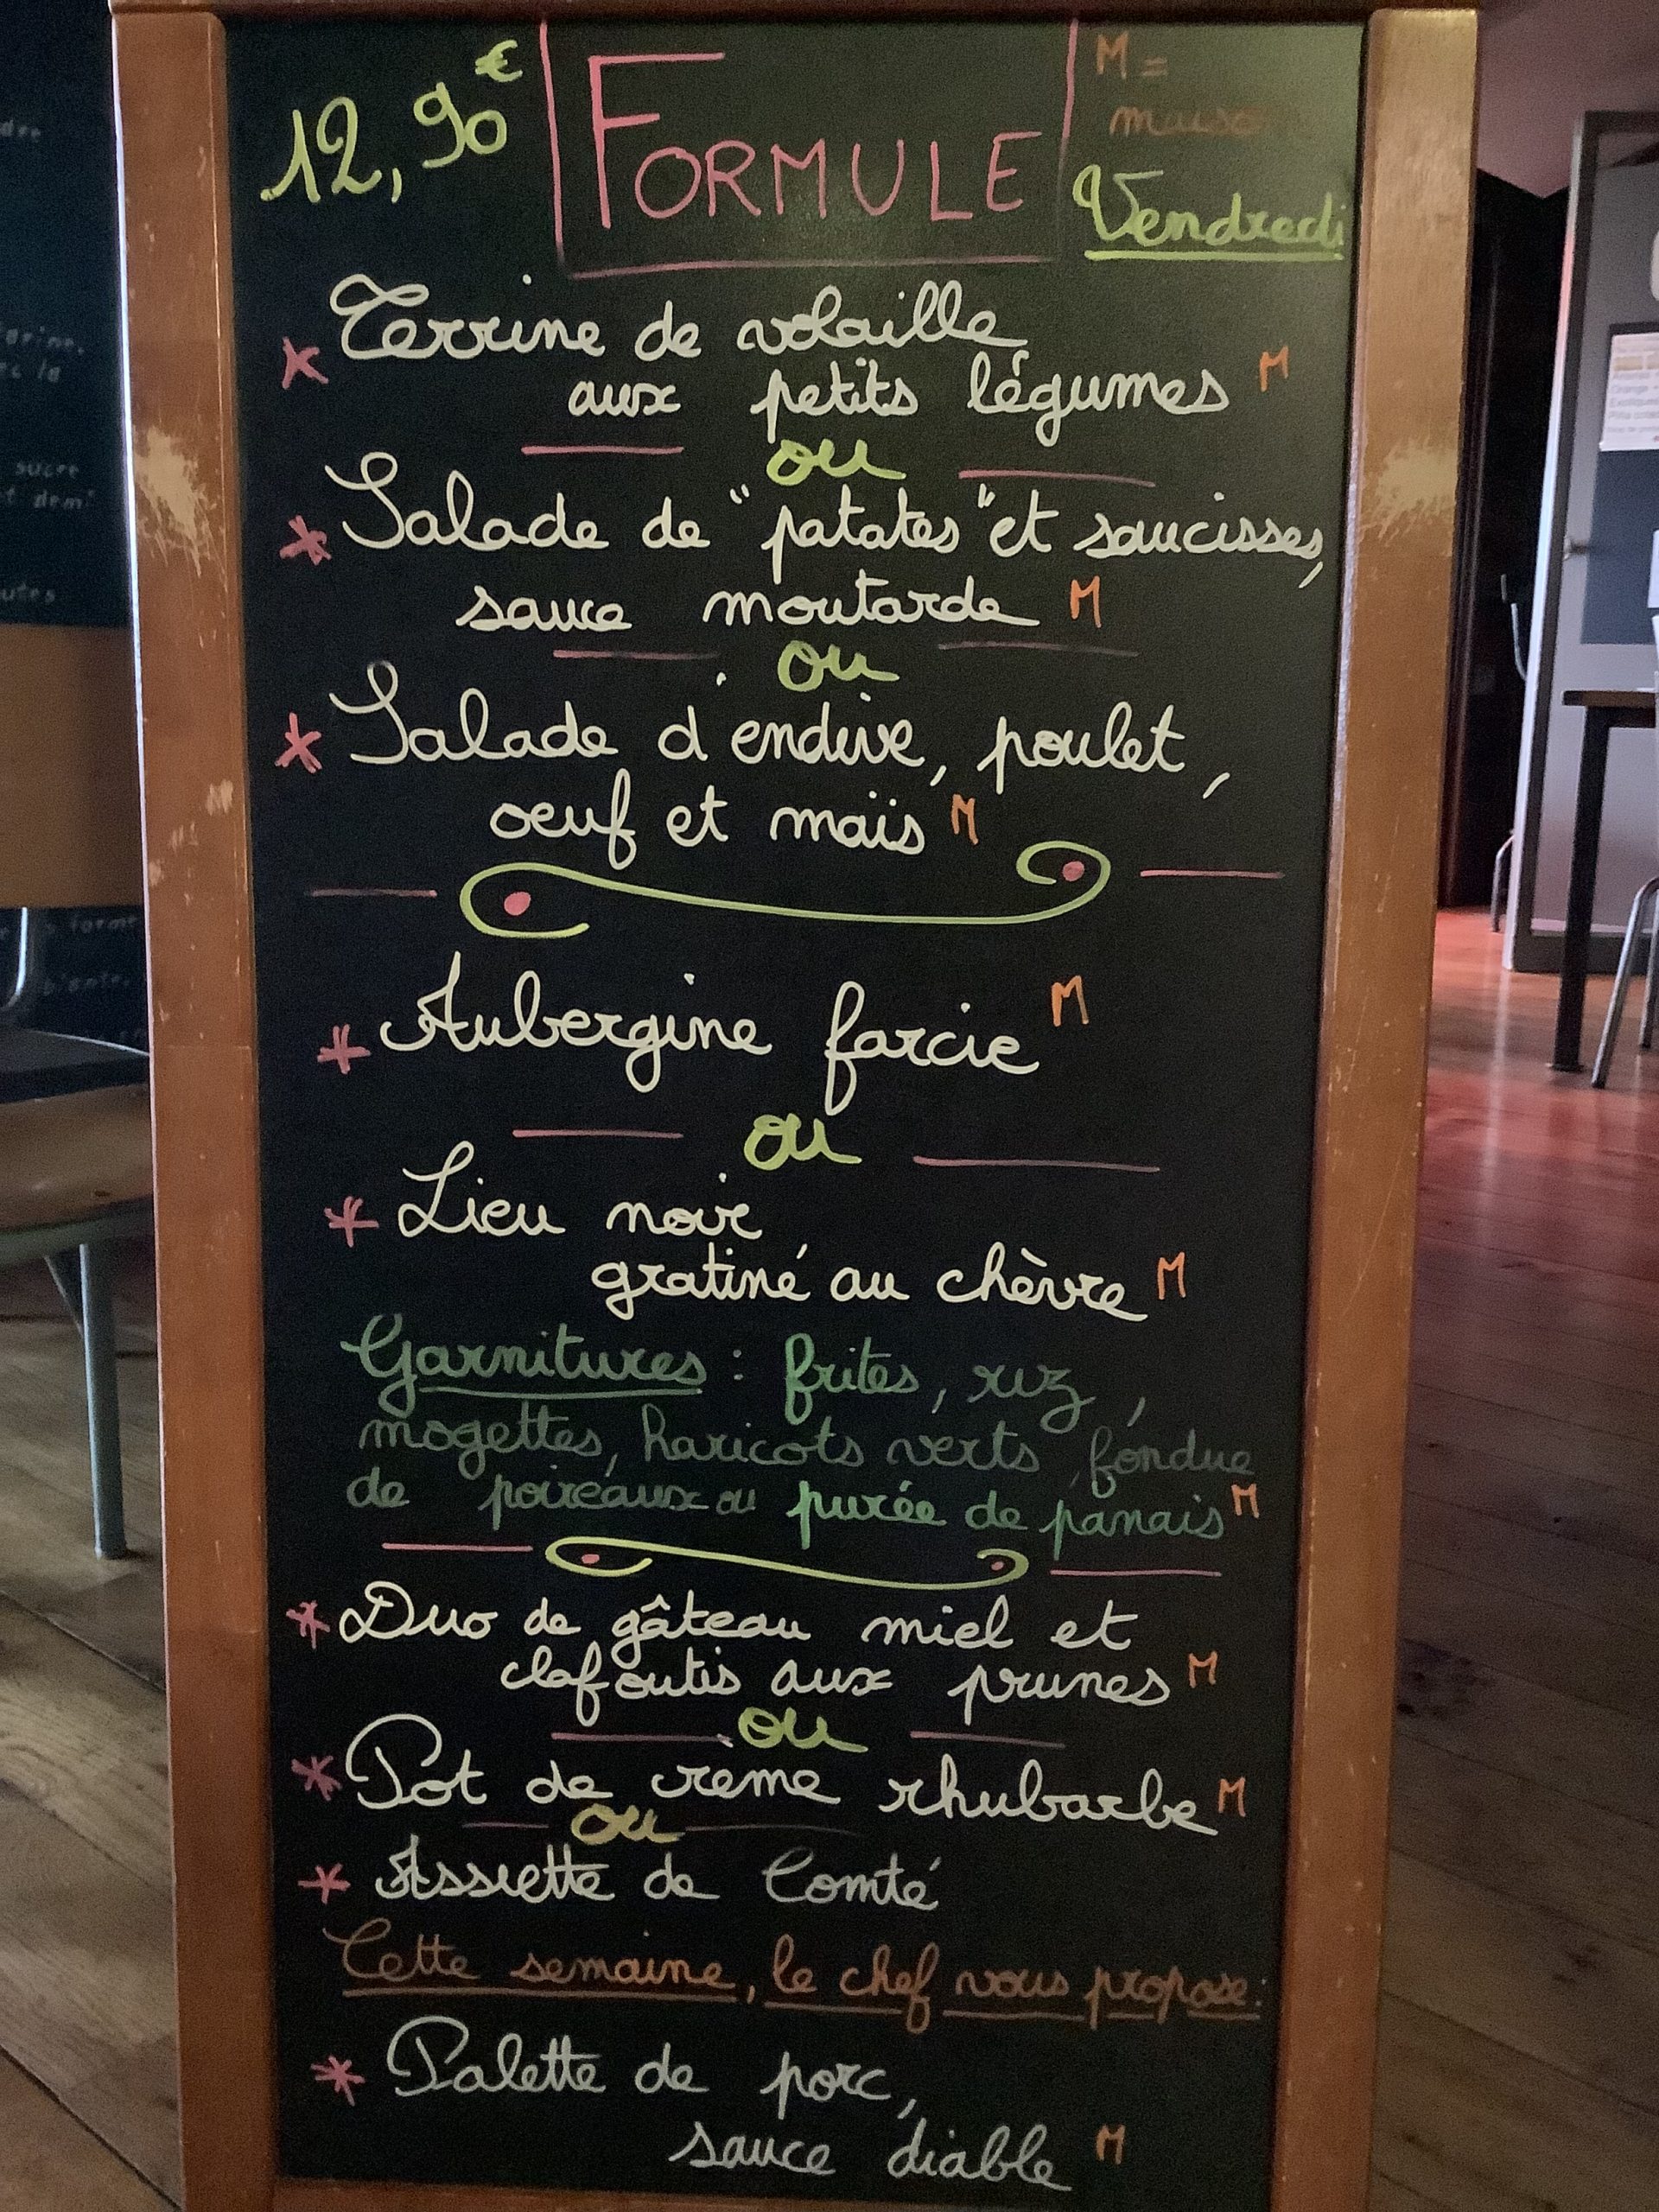 12,90€
FORMULE
M =
maison
Vendredi
* Terrine de volaille
aux petits légumes M
ou
* Salade de "patates" et saucisses,
sauce moutarde M
ou
* Salade d'endive, poulet,
oeuf et maïs M
* Aubergine farcie M
ou
* Lieu noir
gratiné au chèvre M
Garnitures : frites, riz,
mogettes, haricots verts, fondue
de poireaux ou purée de panais M
* Duo de gâteau miel et
clafoutis aux prunes M
ou
* Pot de crème rhubarbe M
ou
* Assiette de Comté
Cette semaine, le chef vous propose :
* Palette de porc,
sauce diable M
sucre